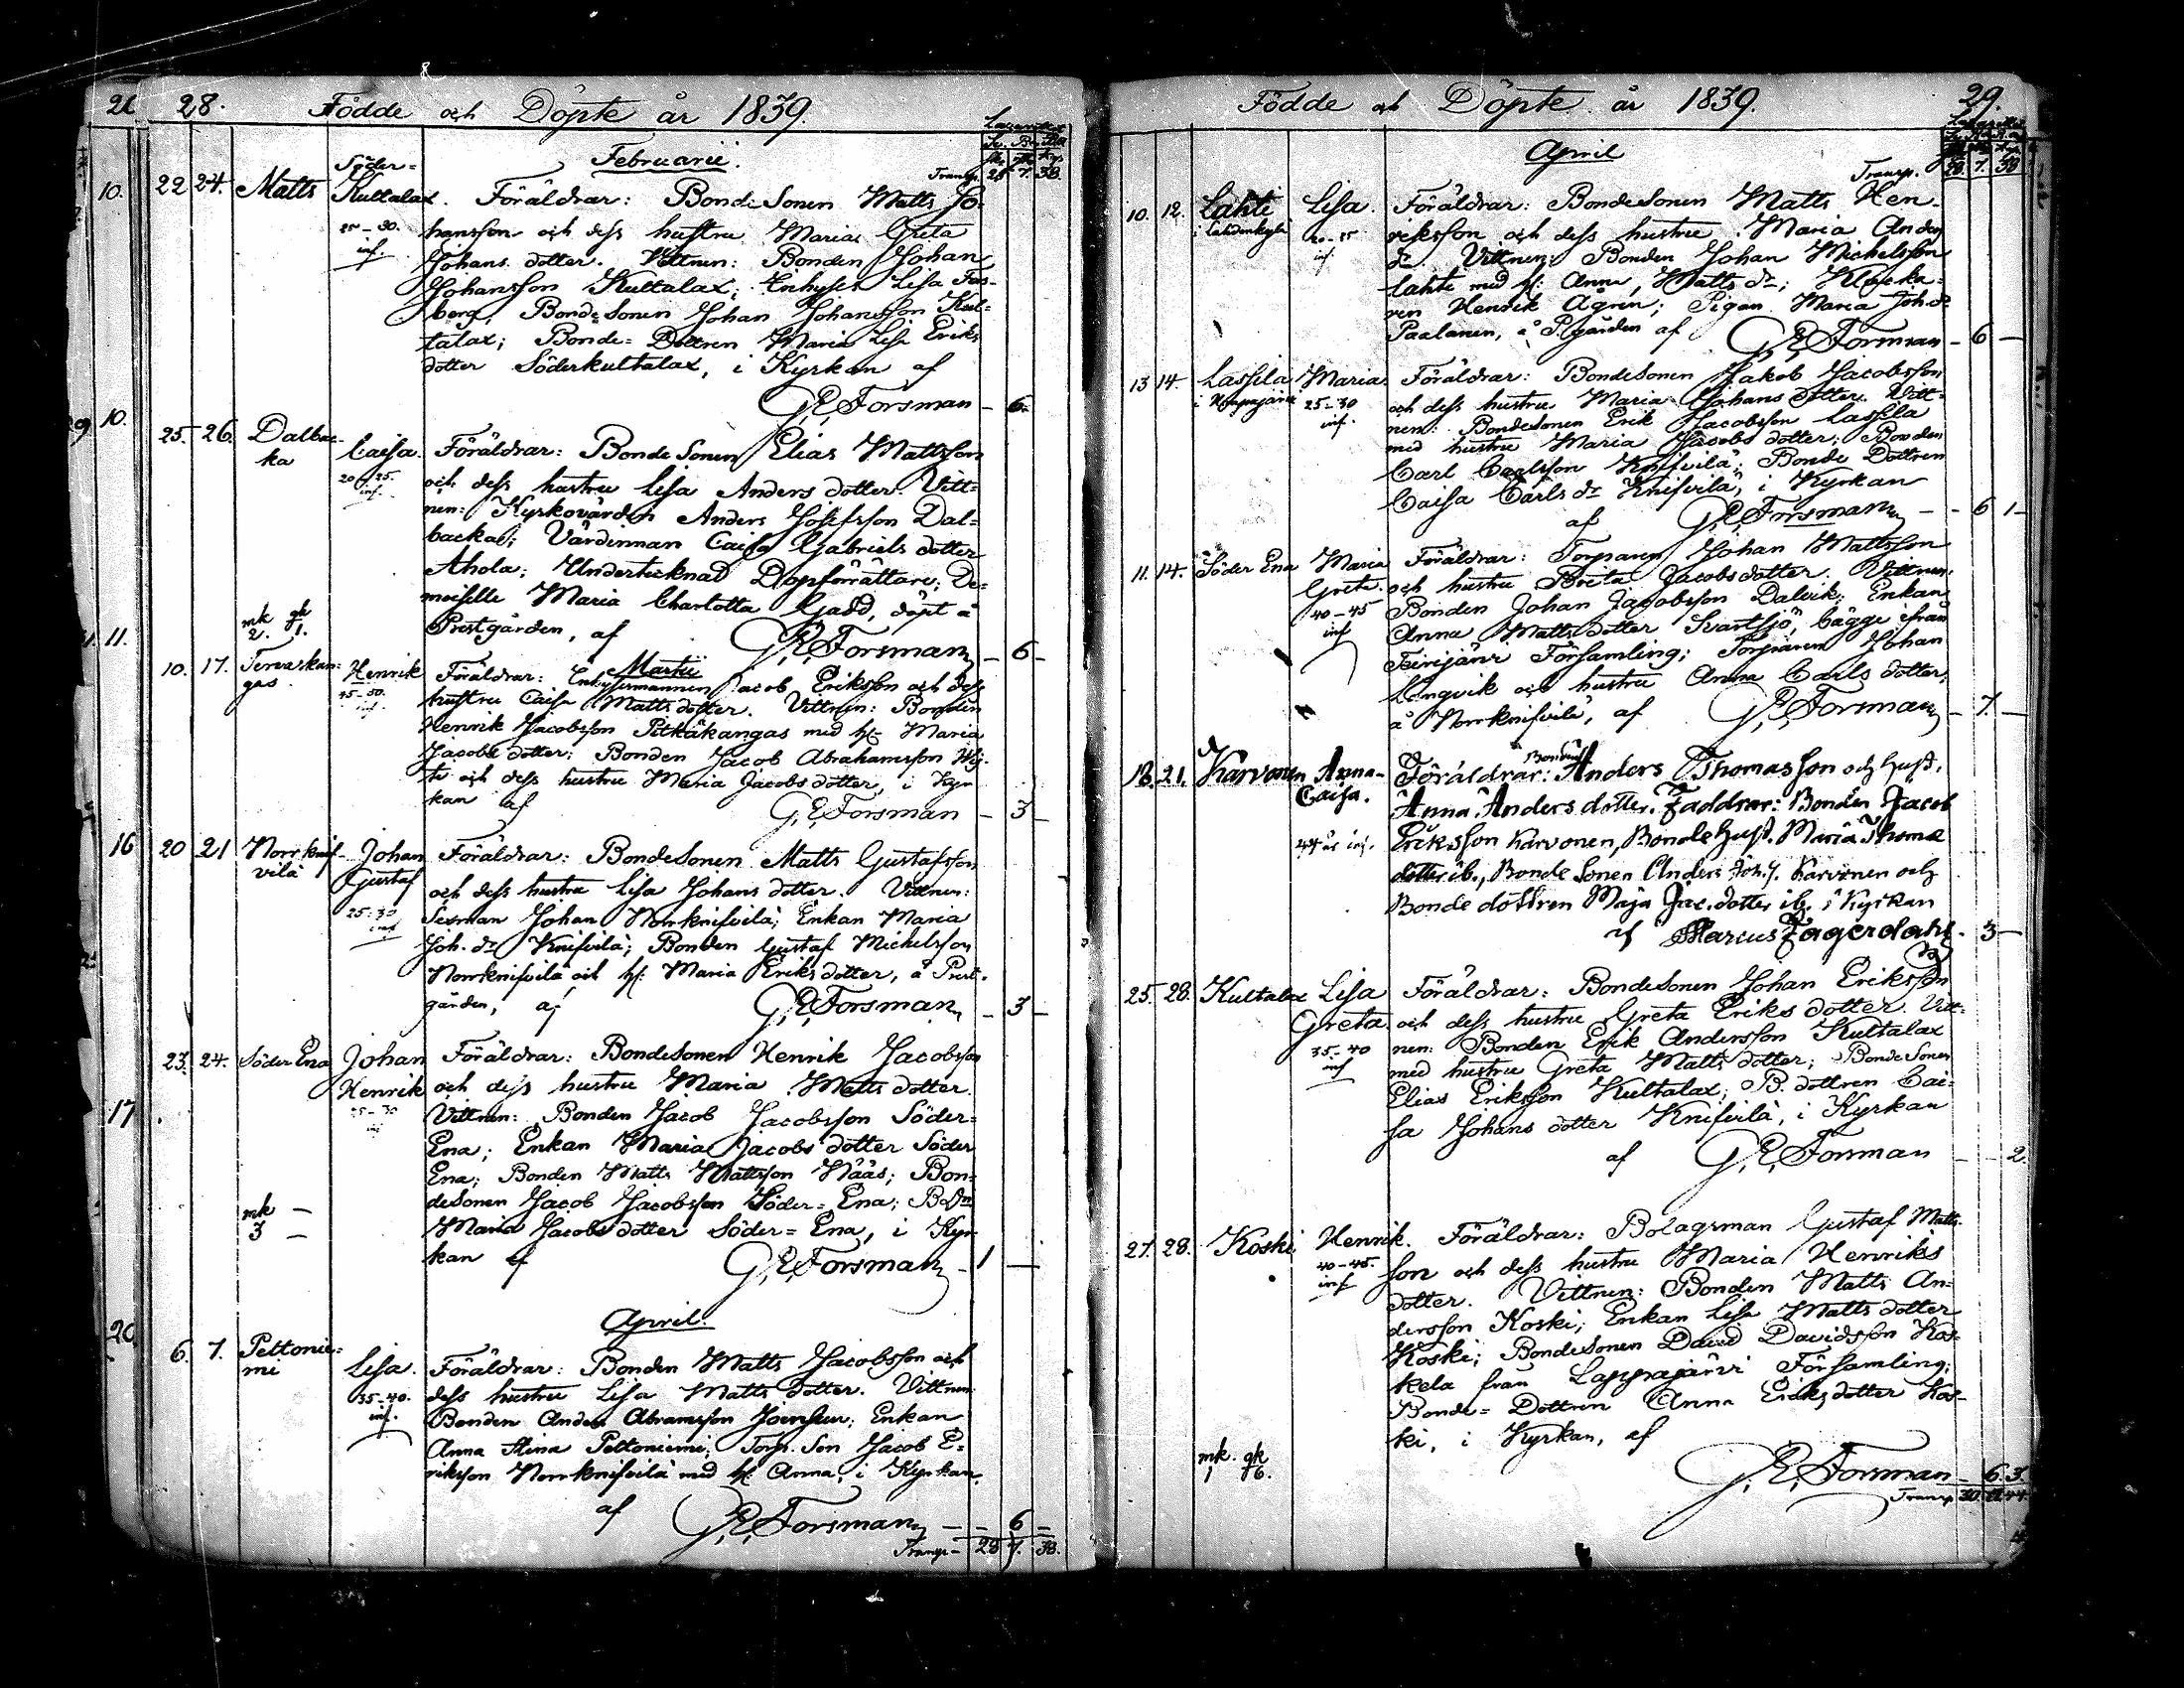 28. Födde och Döpte år 1839.
Februarii.
Transp. 28 7. 38.
22 24. Matts Söder=
Kultalax. Föräldrar: BondeSonen Matts Jo-
25-30. inf. hansson och dess hustru Maria Greta
Johans dotter. Vittnen: Bonden Johan
Johansson Kultalax; Enhyses Lisa Fors-
berg, Bonde Sonen Johan Johansson Kul=
talax; Bonde= Dottren Maria Lisa Eriks
dotter Söderkultalax, i Kyrkan af
G.E. Forsman - 6.
25. 26. Dalbac-
ka Caisa. Föräldrar: Bonde Sonen Elias Mattsson
20-25. inf. och dess hustru Lisa Anders dotter. Vitt=
nen: Kyrkovärden Anders Josefsson Dal=
backa; Värdinnan Caisa Gabriels dotter
Ahola; Undertecknad Dopförrättare; De=
moiselle Maria Charlotta Gadd, döpt å
mk gk
2. 1.
Prestgården, af G.E. Forsman - 6 -
Martii
10. 17. Tervaskan=
gas. Henrik Föräldrar: Enhysesmannen Jacob Eriksson och dess
45-50. inf. hustru Caisa Mattsdotter. Vittnen: Bonden
Henrik Jacobsson Pitkäkangas med h: Maria
Jacobs dotter; Bonden Jacob Abrahamsson
och dess hustru Maria Jacobs dotter, i Kyr
kan af G.E. Forsman - 3 -
20 21 Norrknif-
vilä Johan Föräldrar: BondeSonen Matts Gustafsson
Gustaf och dess hustru Lisa Johans dotter. Vittnen:
25-30 inf Sexman Johan Norrknifvilä; Enkan Maria
Joh. dr Knifvilä; Bonden Gustaf Michelsson
Norrknifvilä och h: Maria Eriksdotter, å Prest-
gården, af G.E. Forsman - 3 -
23. 24. Söder Ena Johan Föräldrar: BondeSonen Henrik Jacobsson
Henrik och dess hustru Maria Matts dotter.
25-30 inf Vittnen: Bonden Jacob Jacobsson Söder=
Ena; Enkan Maria Jacobs dotter Söder
Ena; Bonden Matts Mattsson Näås; Bon-
deSonen Jacob Jacobsson Söder=Ena; B.Dn
mk -
3 -
Maria Jacobs dotter Söder=Ena, i Kyr
kan af G.E. Forsman - 1 -
April.
6. 7. Peltonie=
mi Lisa. Föräldrar: Bonden Matts Jacobsson och
35-40. inf. dess hustru Lisa Matts dotter. Vittnen
Bonden Anders Abramsson; Enkan
Anna Stina Peltoniemi; Torp. Son Jacob E=
riksson Norrknifvilä med h: Anna, i Kyrkan,
af G.E. Forsman - - 6 -
Transp- 28 7. 38.
Födde och Döpte år 1839. 29.
April
Transp. 28. 7. 38
10. 12. Lahti
i Lahdenkylä Lisa. Föräldrar: BondeSonen Matts Hen-
20-25 inf. riksson och dess hustru Maria Anders
dr. Vittnen: Bonden Johan Michelsson
Lahti med h: Anna Matts dr; Klocka=
ren Henrik Ågren; Pigan Maria Joh.dr
Paalanen, å P.gården af G.E. Forsman - 6 -
13 14. Lassila Maria. Föräldrar: BondeSonen Jakob Jacobsson
25-30 inf. och dess hustru Maria Johans dotter. Vitt-
nen: BondeSonen Erik Jacobsson Lassila
med hustru Maria Jacobs dotter; Bonden
Carl Carlsson Knifvilä; Bonde Dottren
Caisa Carls dr Knifvilä, i Kyrkan
af G.E. Forsman - - 6 1-
11. 14. Söder Ena Maria Föräldrar: Torparen Johan Mattsson
Greta. och hustru Brita Jacobsdotter. Vittnen:
40-45 inf Bonden Johan Jacobsson Dalvik; Enkan
Anna Mattsdotter Svartsjö, bägge ifrån
Församling; Torparen Johan
Engvik och hustru Anna Carls dotter,
å Norrknifvilä, af G.E. Forsman - 7. -
18. 21. Karvonen Anna- Föräldrar: Bonden Anders Thomasson och hust.
Caisa. Anna Anders dotter. Faddrar: Bonden Jacob
44 år inf. Eriksson Karvonen, Bonde hust. Maria Thomæ
dotter ib., Bonde Sonen Anders Joh. Karvonen och
Bonde dottren Maja Jac. dotter ib. i Kyrkan
af Marcus Fagerdahl. 3 -
25. 28. Kultalax Lisa Föräldrar: BondeSonen Johan Eriksson
Greta. och dess hustru Greta Eriks dotter. Vitt-
35-40 inf nen: Bonden Erik Andersson Kultalax
med hustru Greta Matts dotter; BondeSonen
Elias Eriksson Kultalax; B. dottren Cai=
sa Johans dotter Knifvilä, i Kyrkan
af G.E. Forsman - - 2.
27. 28. Koski Henrik. Föräldrar: Bolagsman Gustaf Matts-
40-45. inf son och dess hustru Maria Henriks
dotter. Vittnen: Bonden Matts An=
dersson Koski; Enkan Lisa Matts dotter
Koski; BondeSonen David Davidsson Kos=
kela från Lappajärvi Församling;
Bonde= Dottren Anna Eriks dotter Kos-
ki, i Kyrkan, af
mk. gk
1 6.
G.E. Forsman - 6. 3.
Transp 30.